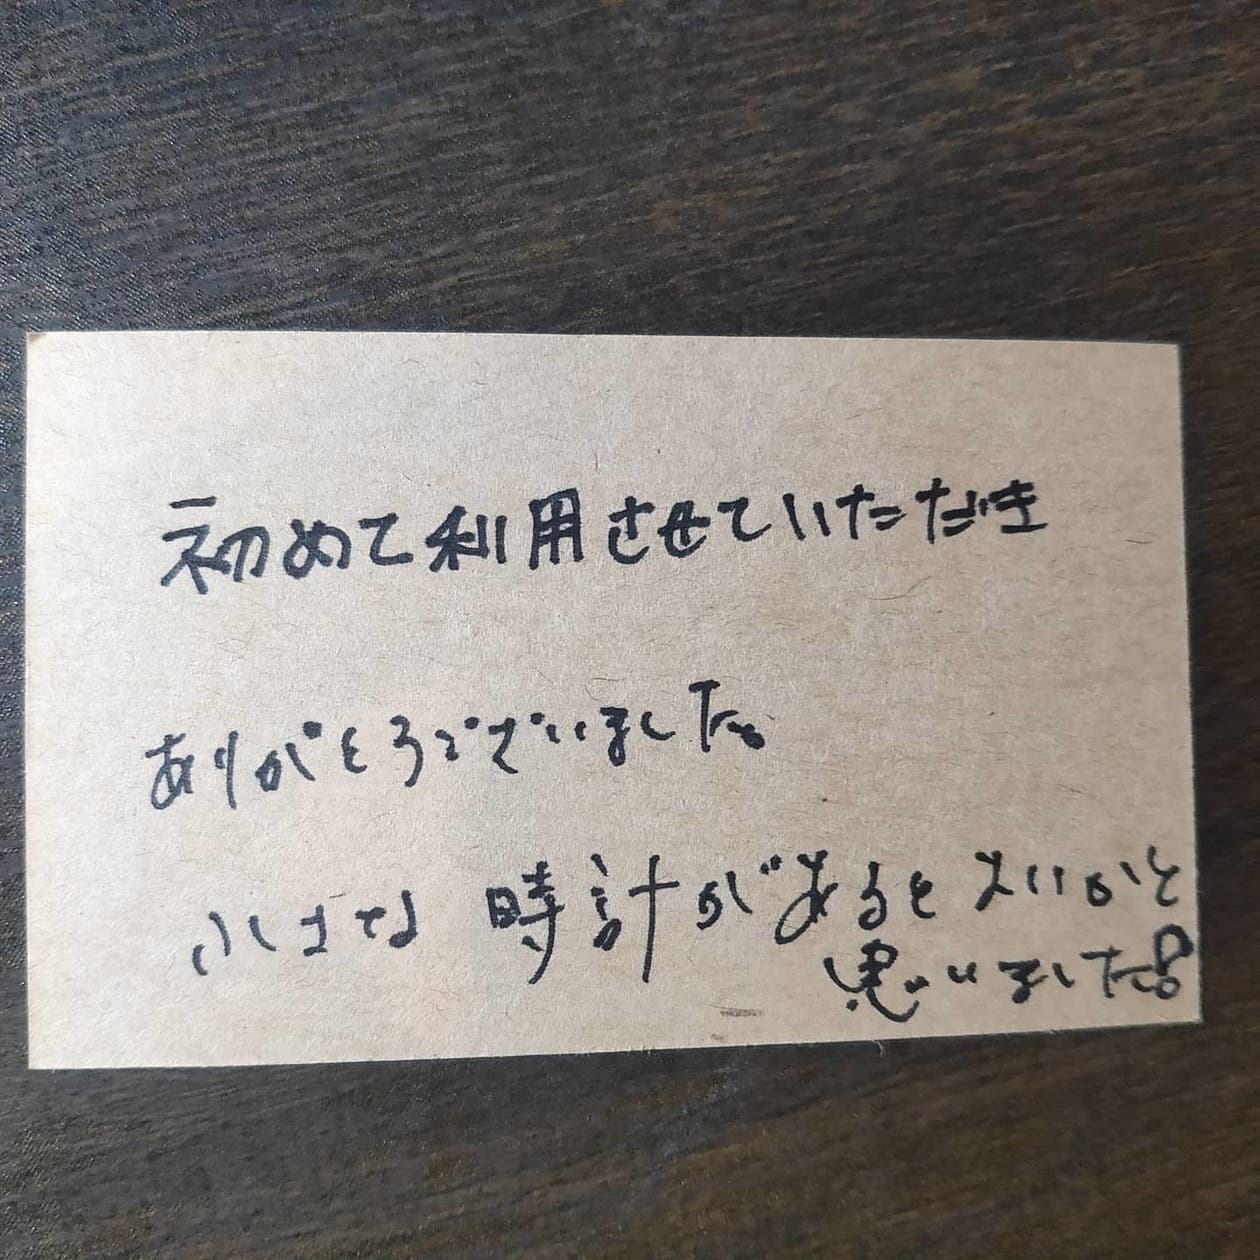 初めて利用させていただき
ありがとうございました。
小さな 時計があるとよいかと
思いました。